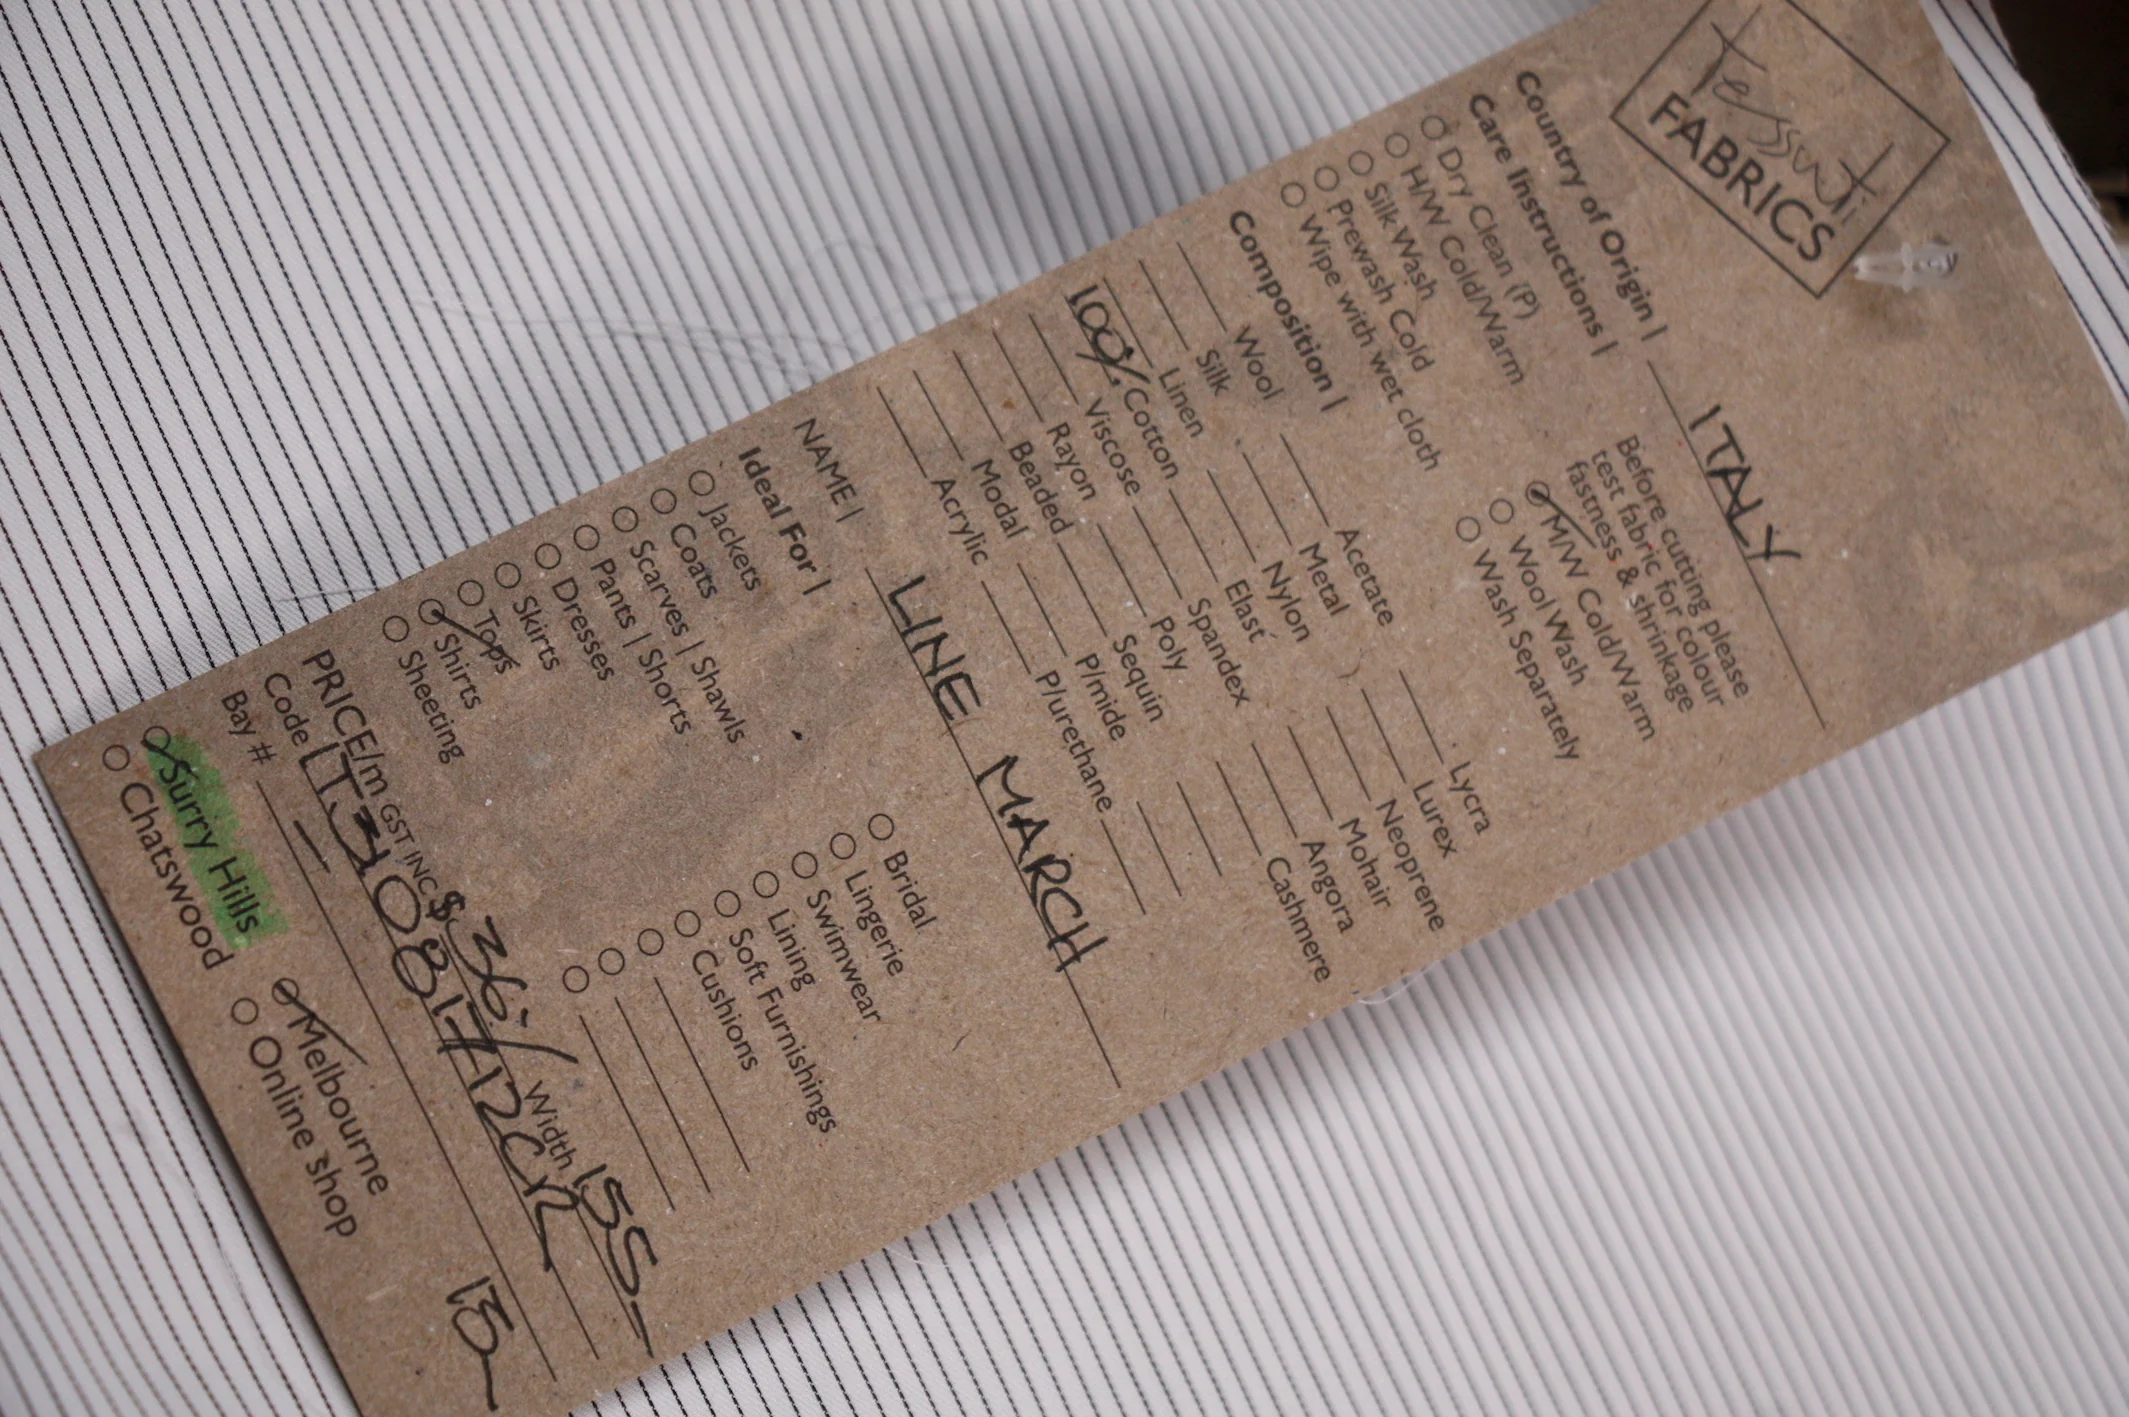 Tessuti
FABRICS
Country of Origin | ITALY
Care Instructions |
Before cutting please
test fabric for colour
fastness & shrinkage
Dry Clean (P)
H/W Cold/Warm
Silk Wash
Prewash Cold
Wipe with wet cloth
M/W Cold/Warm
Wool Wash
Wash Separately
Composition |
Wool Acetate Lycra
Silk Metal Lurex
Linen Nylon Neoprene
100% Cotton Elast Mohair
Viscose Spandex Angora
Rayon Poly Cashmere
Beaded Sequin
Modal P/mide
Acrylic P/urethane
NAME | LINE MARCH
Ideal For |
Jackets Bridal
Coats Lingerie
Scarves | Shawls Swimwear
Pants | Shorts Lining
Dresses Soft Furnishings
Skirts Cushions
Tops
Shirts
Sheeting
PRICE/m GST INC $36 Width 155
Code
Bay #
Surry Hills Melbourne
Chatswood Online shop